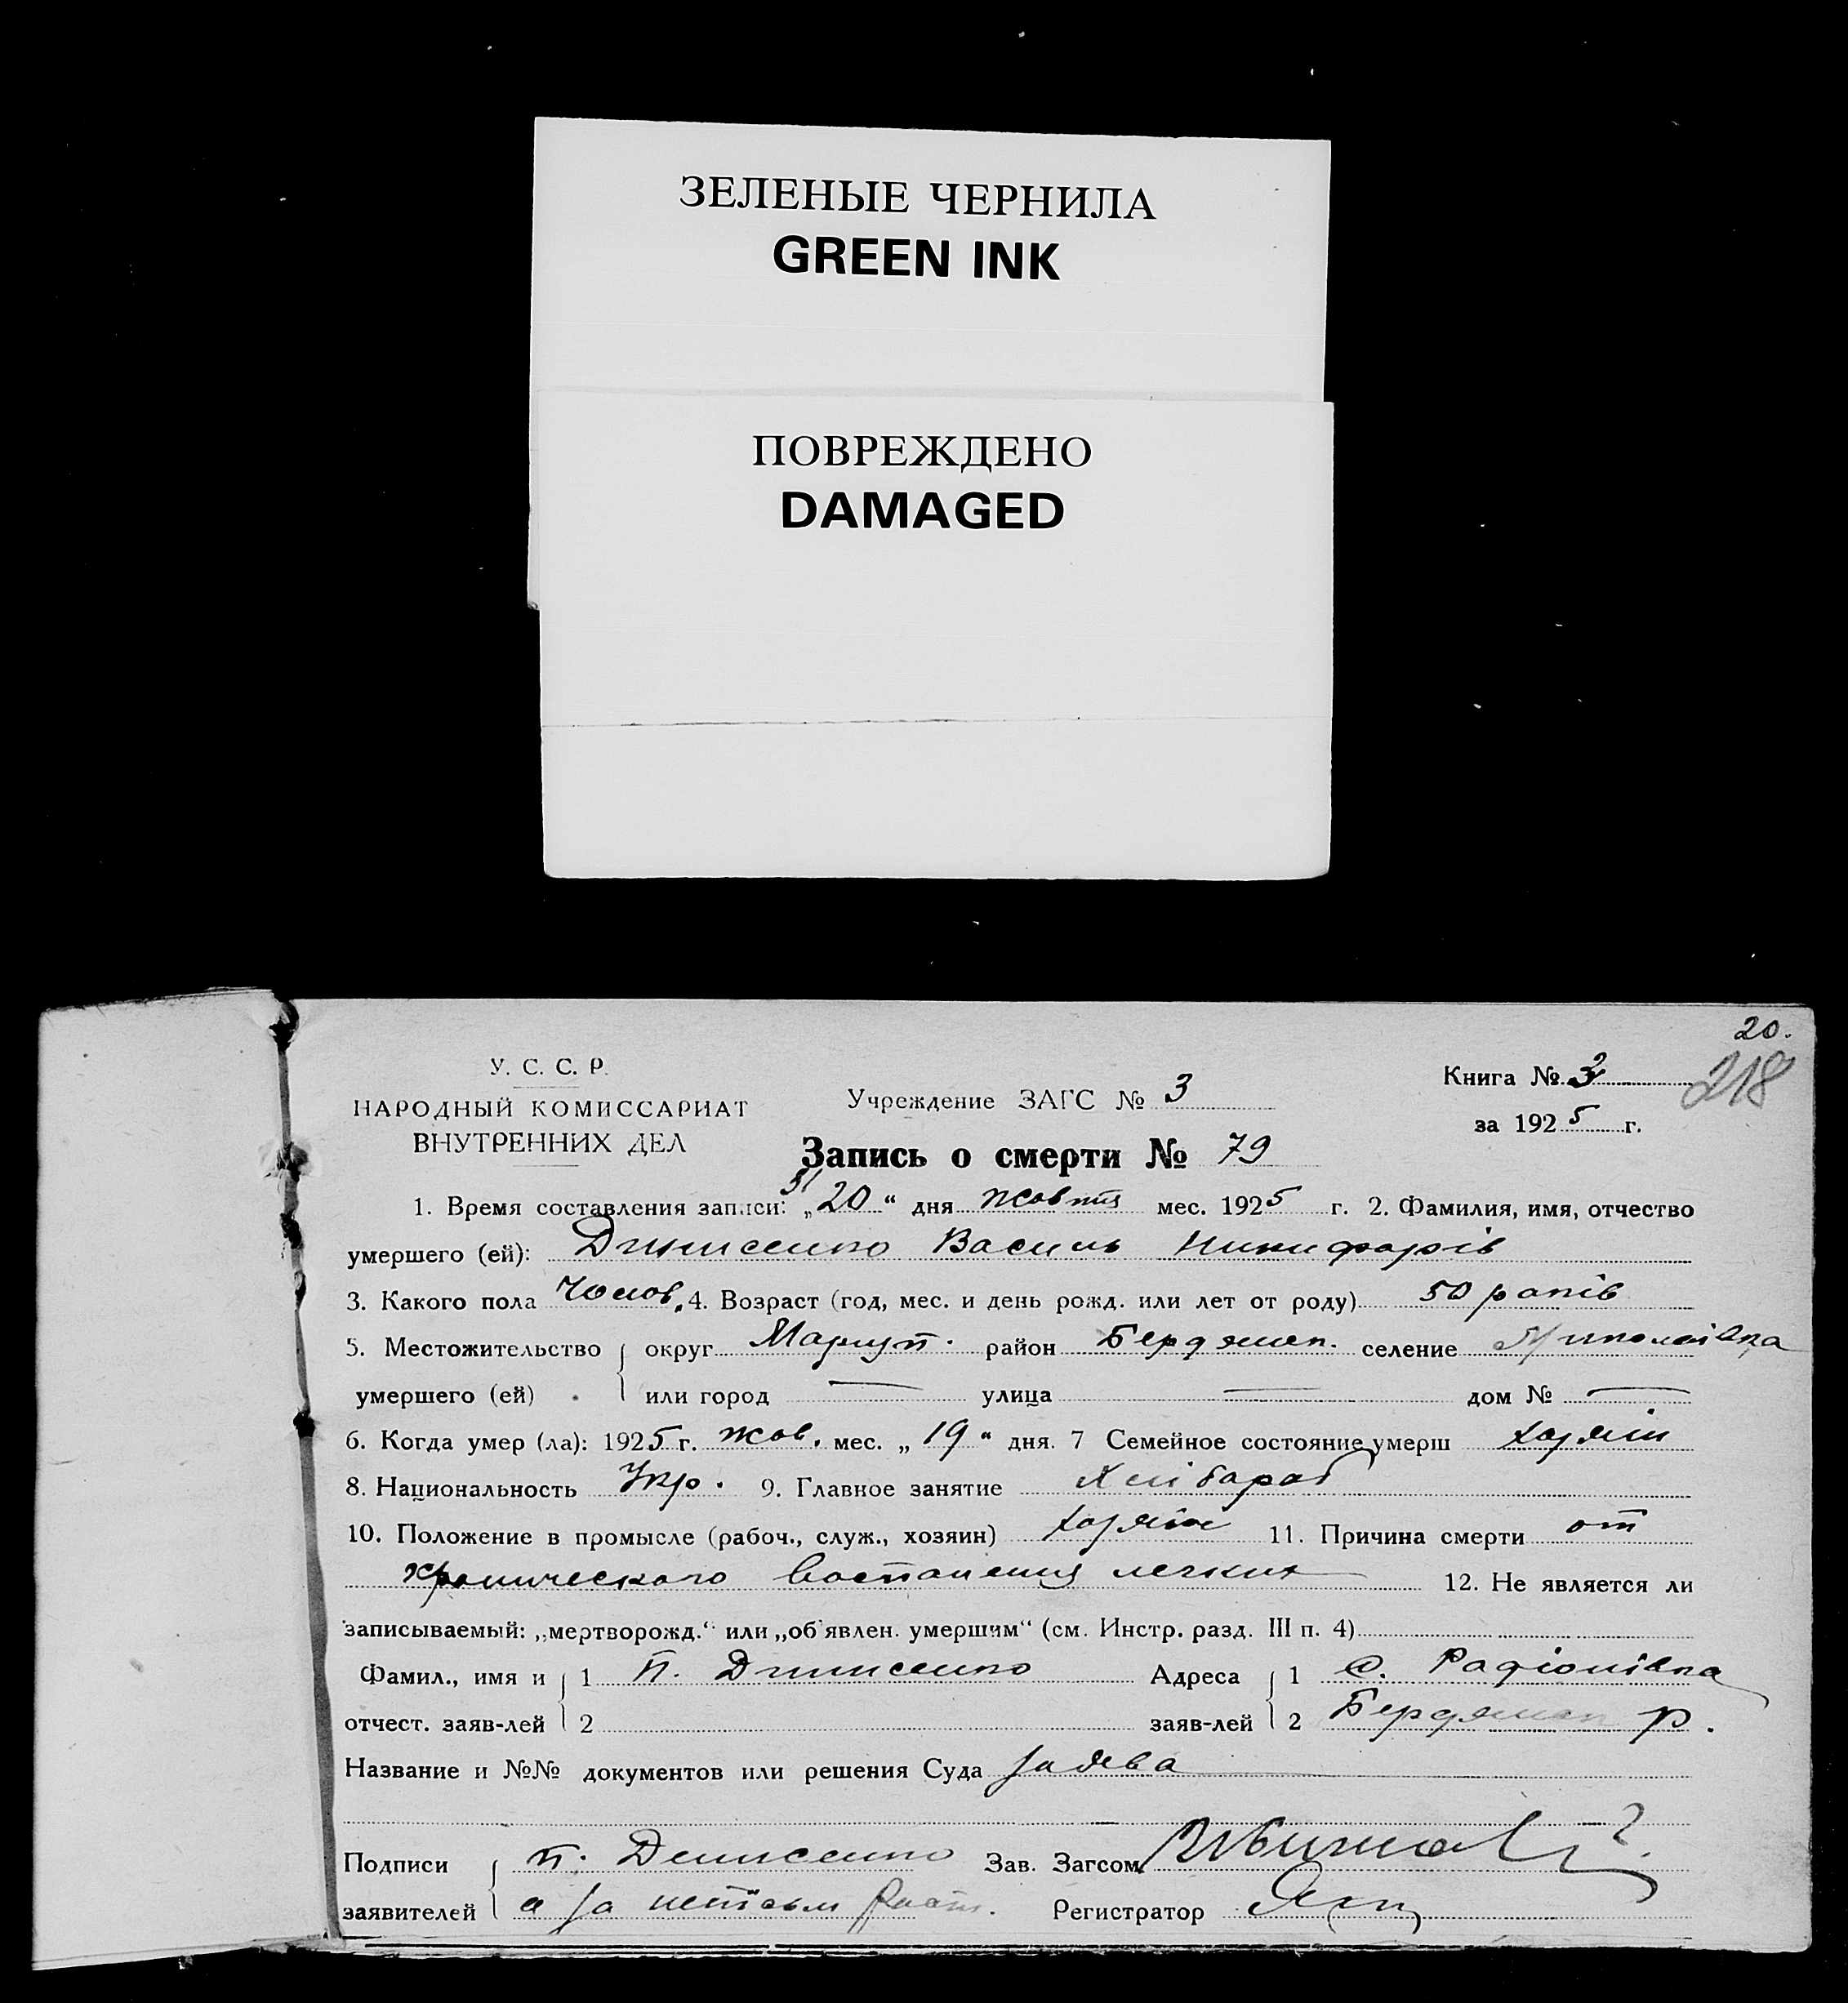 ЗЕЛЕНЫЕ ЧЕРНИЛА
GREEN INK
ПОВРЕЖДЕНО
DAMAGED
20.
218
У. С. С. Р.
НАРОДНЫЙ КОМИССАРИАТ
ВНУТРЕННИХ ДЕЛ
Учреждение ЗАГС № 3
Книга № 3
за 1925 г.
Запись о смерти № 79
1. Время составления записи: „20“ дня жовтня мес. 1925 г. 2. Фамилия, имя, отчество
умершего (ей): Динисенко Василь Никифорів
3. Какого пола Чолов. 4. Возраст (год, мес. и день рожд. или лет от роду) 50 років
5. Местожительство округ Маріуп. район Бердянск. селение
умершего (ей) или город — улица — дом № —
6. Когда умер (ла): 1925 г. жов. мес. „19“ дня. 7 Семейное состояние умерш хазяїн
8. Национальность Укр. 9. Главное занятие Хлібороб
10. Положение в промысле (рабоч., служ., хозяин) хазяїн 11. Причина смерти от
хронического воспаления легких 12. Не является ли
записываемый: „мертворожд.“ или „об'явлен. умершим“ (см. Инстр. разд. III п. 4)
Фамил., имя и 1 П. Динисенко Адреса 1 с. Радіонівка
отчест. заяв-лей 2 заяв-лей 2 Бердянск р.
Название и №№ документов или решения Суда заява
Подписи П. Денисенко Зав. Загсом
заявителей а за неписьм Регистратор